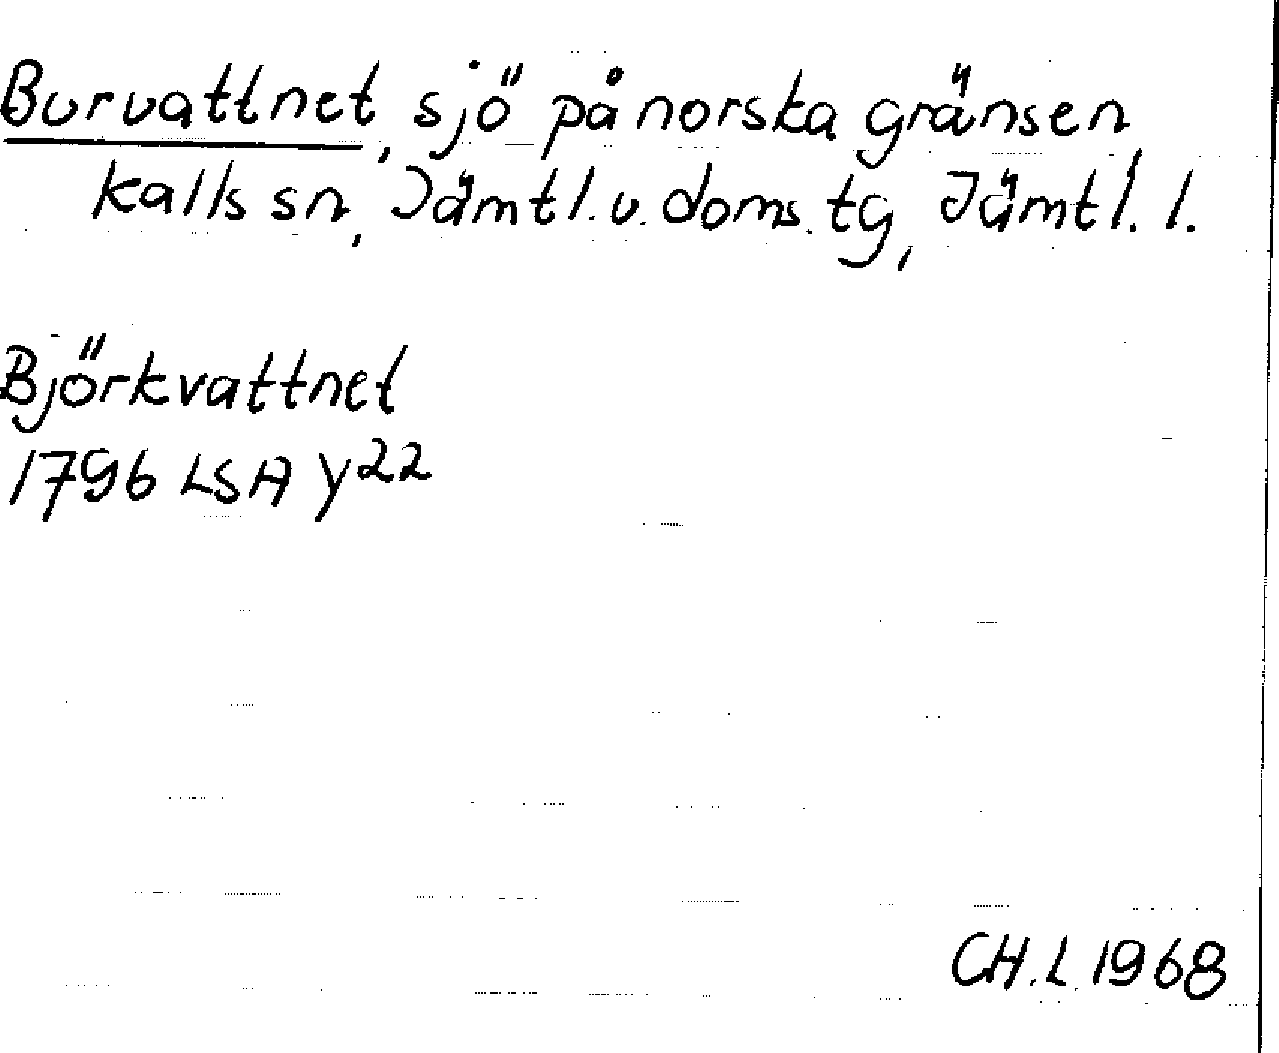 Burvattnet, sjö på norska gränsen
Kalls sn, Jämtl. v. doms. tg, Jämtl. l.
Björkvattnet
1796 LSA Y22
CH.L 1968